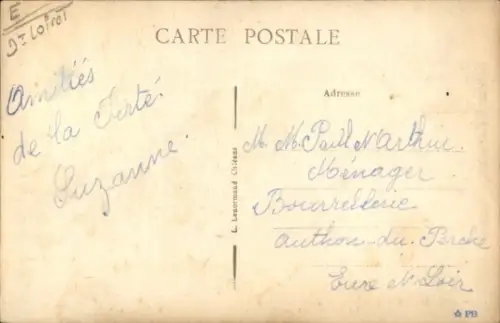 E
Dt Loiret
CARTE POSTALE
Amitiés
de la Ferté.
Suzanne.
L. Lenormand Orléans
Adresse
M. M. Paul N Arthur
Ménager
Bourrellerie
Authon-du-Perche
Eure N Loir
PB